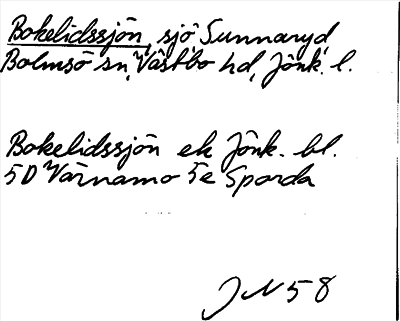 Bokelidssjön, sjö Sunnaryd,
Bolmsö sn, Västbo hd, Jönk. l.
Bokelidssjön ek Jönk. bl.
5D Värnamo 5e Sporda
JN 58